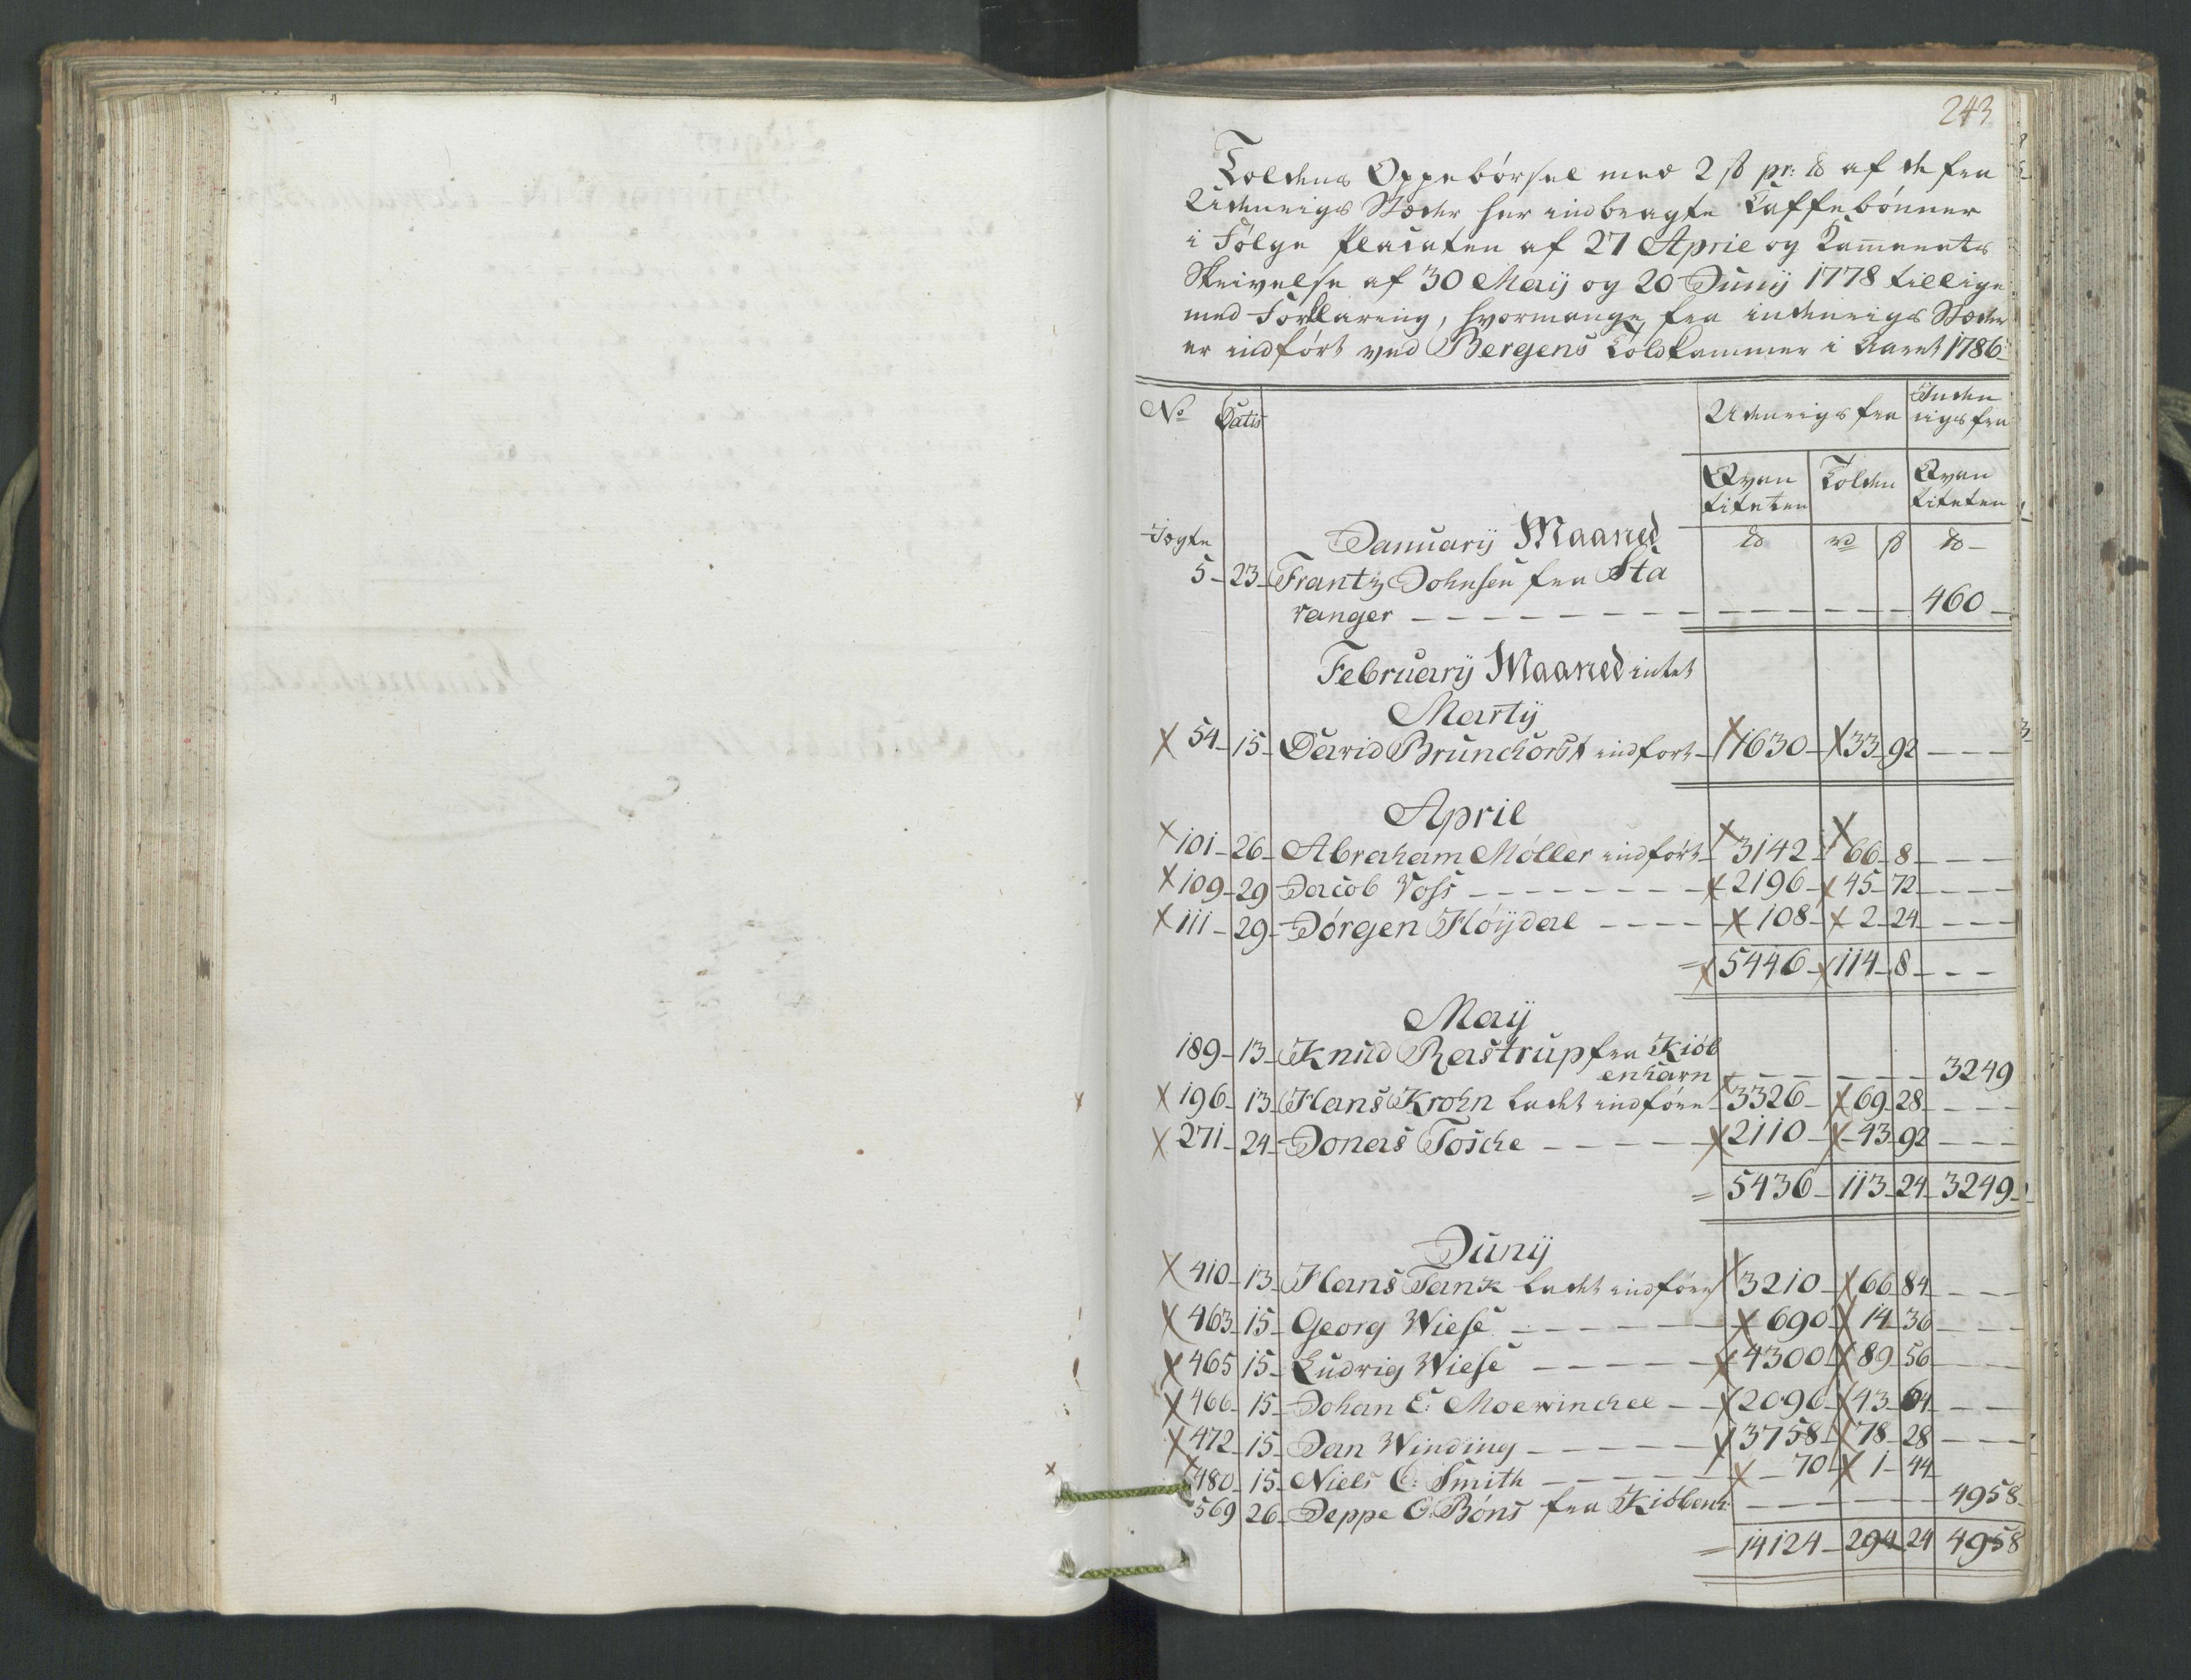 243
Toldens Oppebörsel med 2 ß pr: ℔ af de fra
Udenrigs Stæder her indbragte Caffebönner
i Fölge Placaten af 27 April og Cammerets
Skrivelse af 30 Maij og 20 Junij 1778 tillige
med Forklaring, hvormange, fra indenrigs Stæder
er indfört ved Bergens Toldkammer i Aaret 1786
No Datis Udenrigs fra Inden
rigs fra
Qvan Tolden Qvan
titeten titeten
Januarij Maaned ℔ rd ß ℔
5 - 23 - Frantz Johnsen fra Sta
vanger - - - 460 -
Februarij Maaned intet
Martij
X 54 - 15 - David Brunchorst indfört - X 1630 - X 33 - 92 - - -
April
X 101 - 26 - Abraham Möller indfört - X 3142 - X 66 - 8 - - -
X 109 - 29 Jacob Voss - - - X 2196 - X 45 - 72 - - -
X 111 - 29 - Jörgen Flöijdal - - - X 108 - X 2 - 24 - - -
= X 5446 - X 114 - 8 - - -
Maij
189 - 13 - Knud Rastrup fra Kiöb
enhavn - - - 3249
X 196 - 13 - Hans Krohn ladet indföre X 3326 - X 69 - 28 - - -
X 271 - 24 - Jonas Tosche - - - X 2110 - X 43 - 92 - - -
= 5436 - 113 - 24 - 3249 -
Junij
X 410 - 13 - Hans Tank ladet indföre X 3210 - X 66 84 - - -
X 463 - 15 - Georg Wiese - - - X 690 X 14 36 - - -
X 465 15 - Ludvig Wiese - - - X 4300 X 89 56 - - -
X 466 - 15 - Johan E: Mowinckel - - X 2096 X 43 - 64 - - -
X 472 - 15 - Jan Winding - - - X 3758 - X 78 - 28 - - -
X 480 - 15 - Niels C: Smith - - - X - 70 X 1 - 44 -
569 26 - Jeppe O: Böns fra Kiöbenh: - - - 4958 -
= 14124 - 294 24 4958